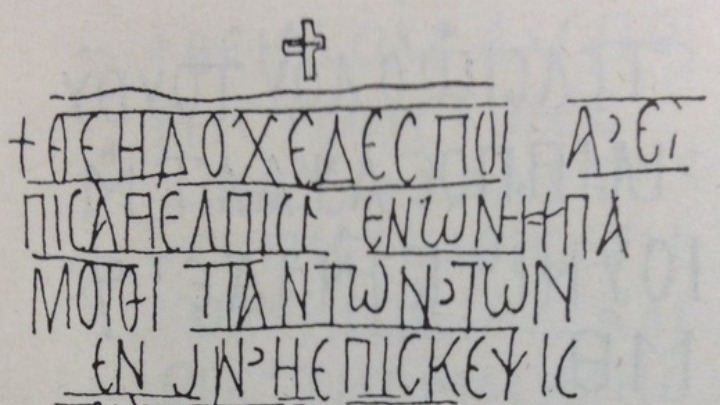 +ΘΕΗΔΟΧΕΔΕCΠΟΙ Α>ΕΪ
ΠΙCΑΗΕΛΠΙCΙ ΕΝΩΝΗΠΑ
ΜΟΙΘΙ ΠΑΝΤΩΝ>ΤΩΝ
ΕΝ ΗΕΠΙCΚΕΨΙC